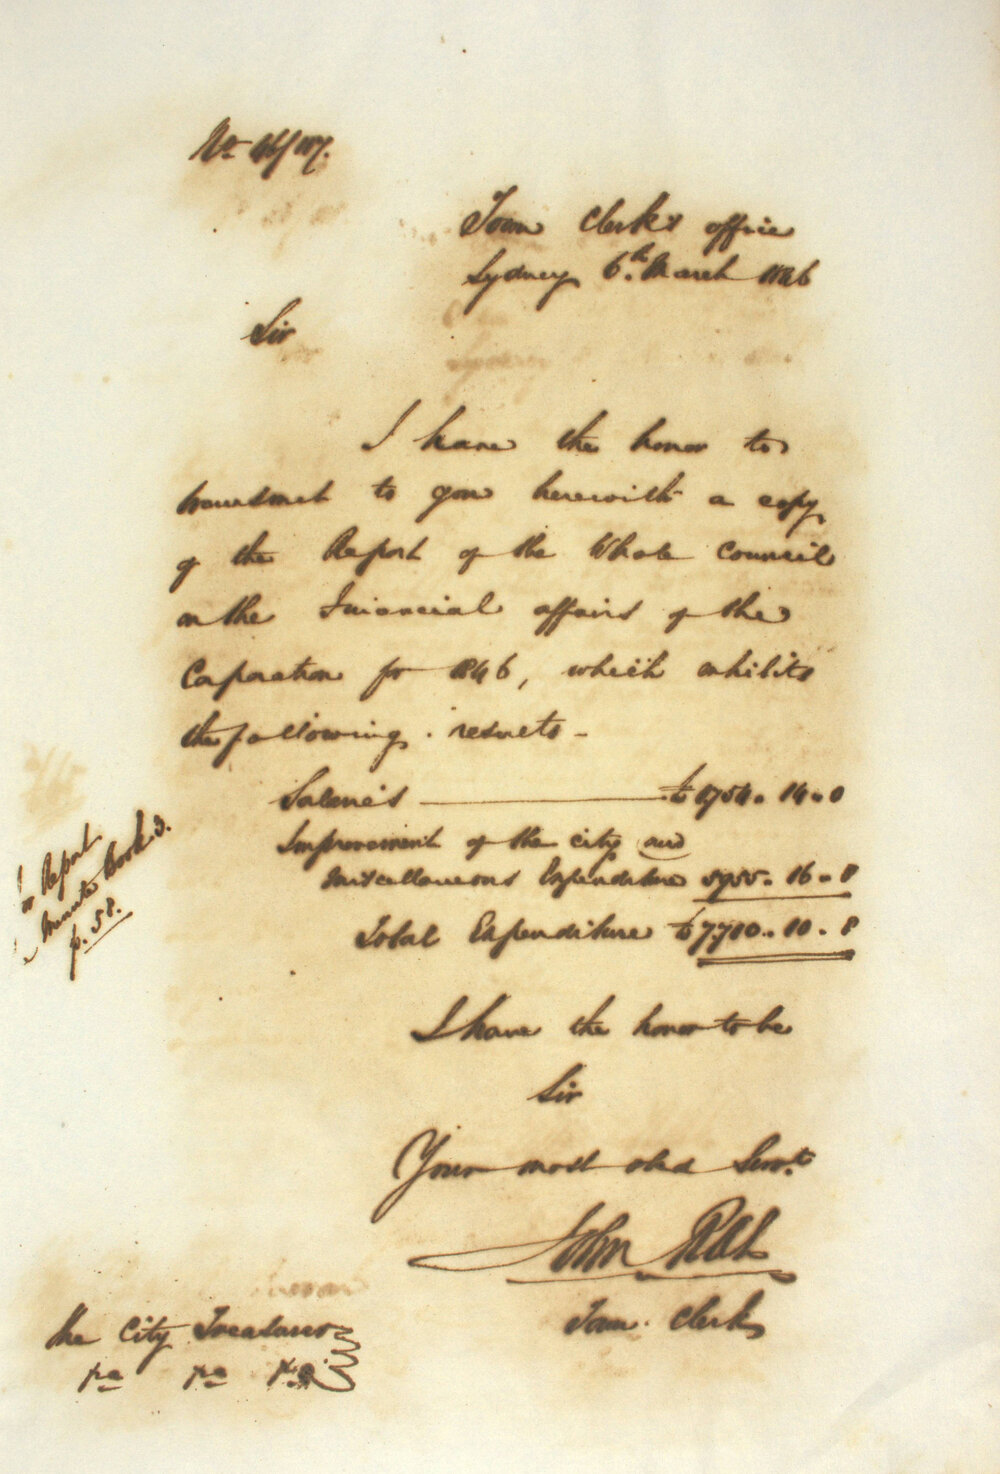 No. 46/117.
Town Clerk's office
Sydney 6th. March 1846
Sir
I have the honor to
transmit to you herewith a copy
of the Report of the Whole Council
on the Financial affairs of the
Corporation for 1846, which exhibits
the following . results -
Salaries £1754. 14. 0
Improvement of the city and
Miscellaneous Expenditure 5955. 16. 8
Total Expenditure £7,710. 10. 8
I have the honor to be
Sir
Your most obed Servt.
John Rae
Town Clerk
The City Treasurer
Report
Minute Book 3.
p. 58.